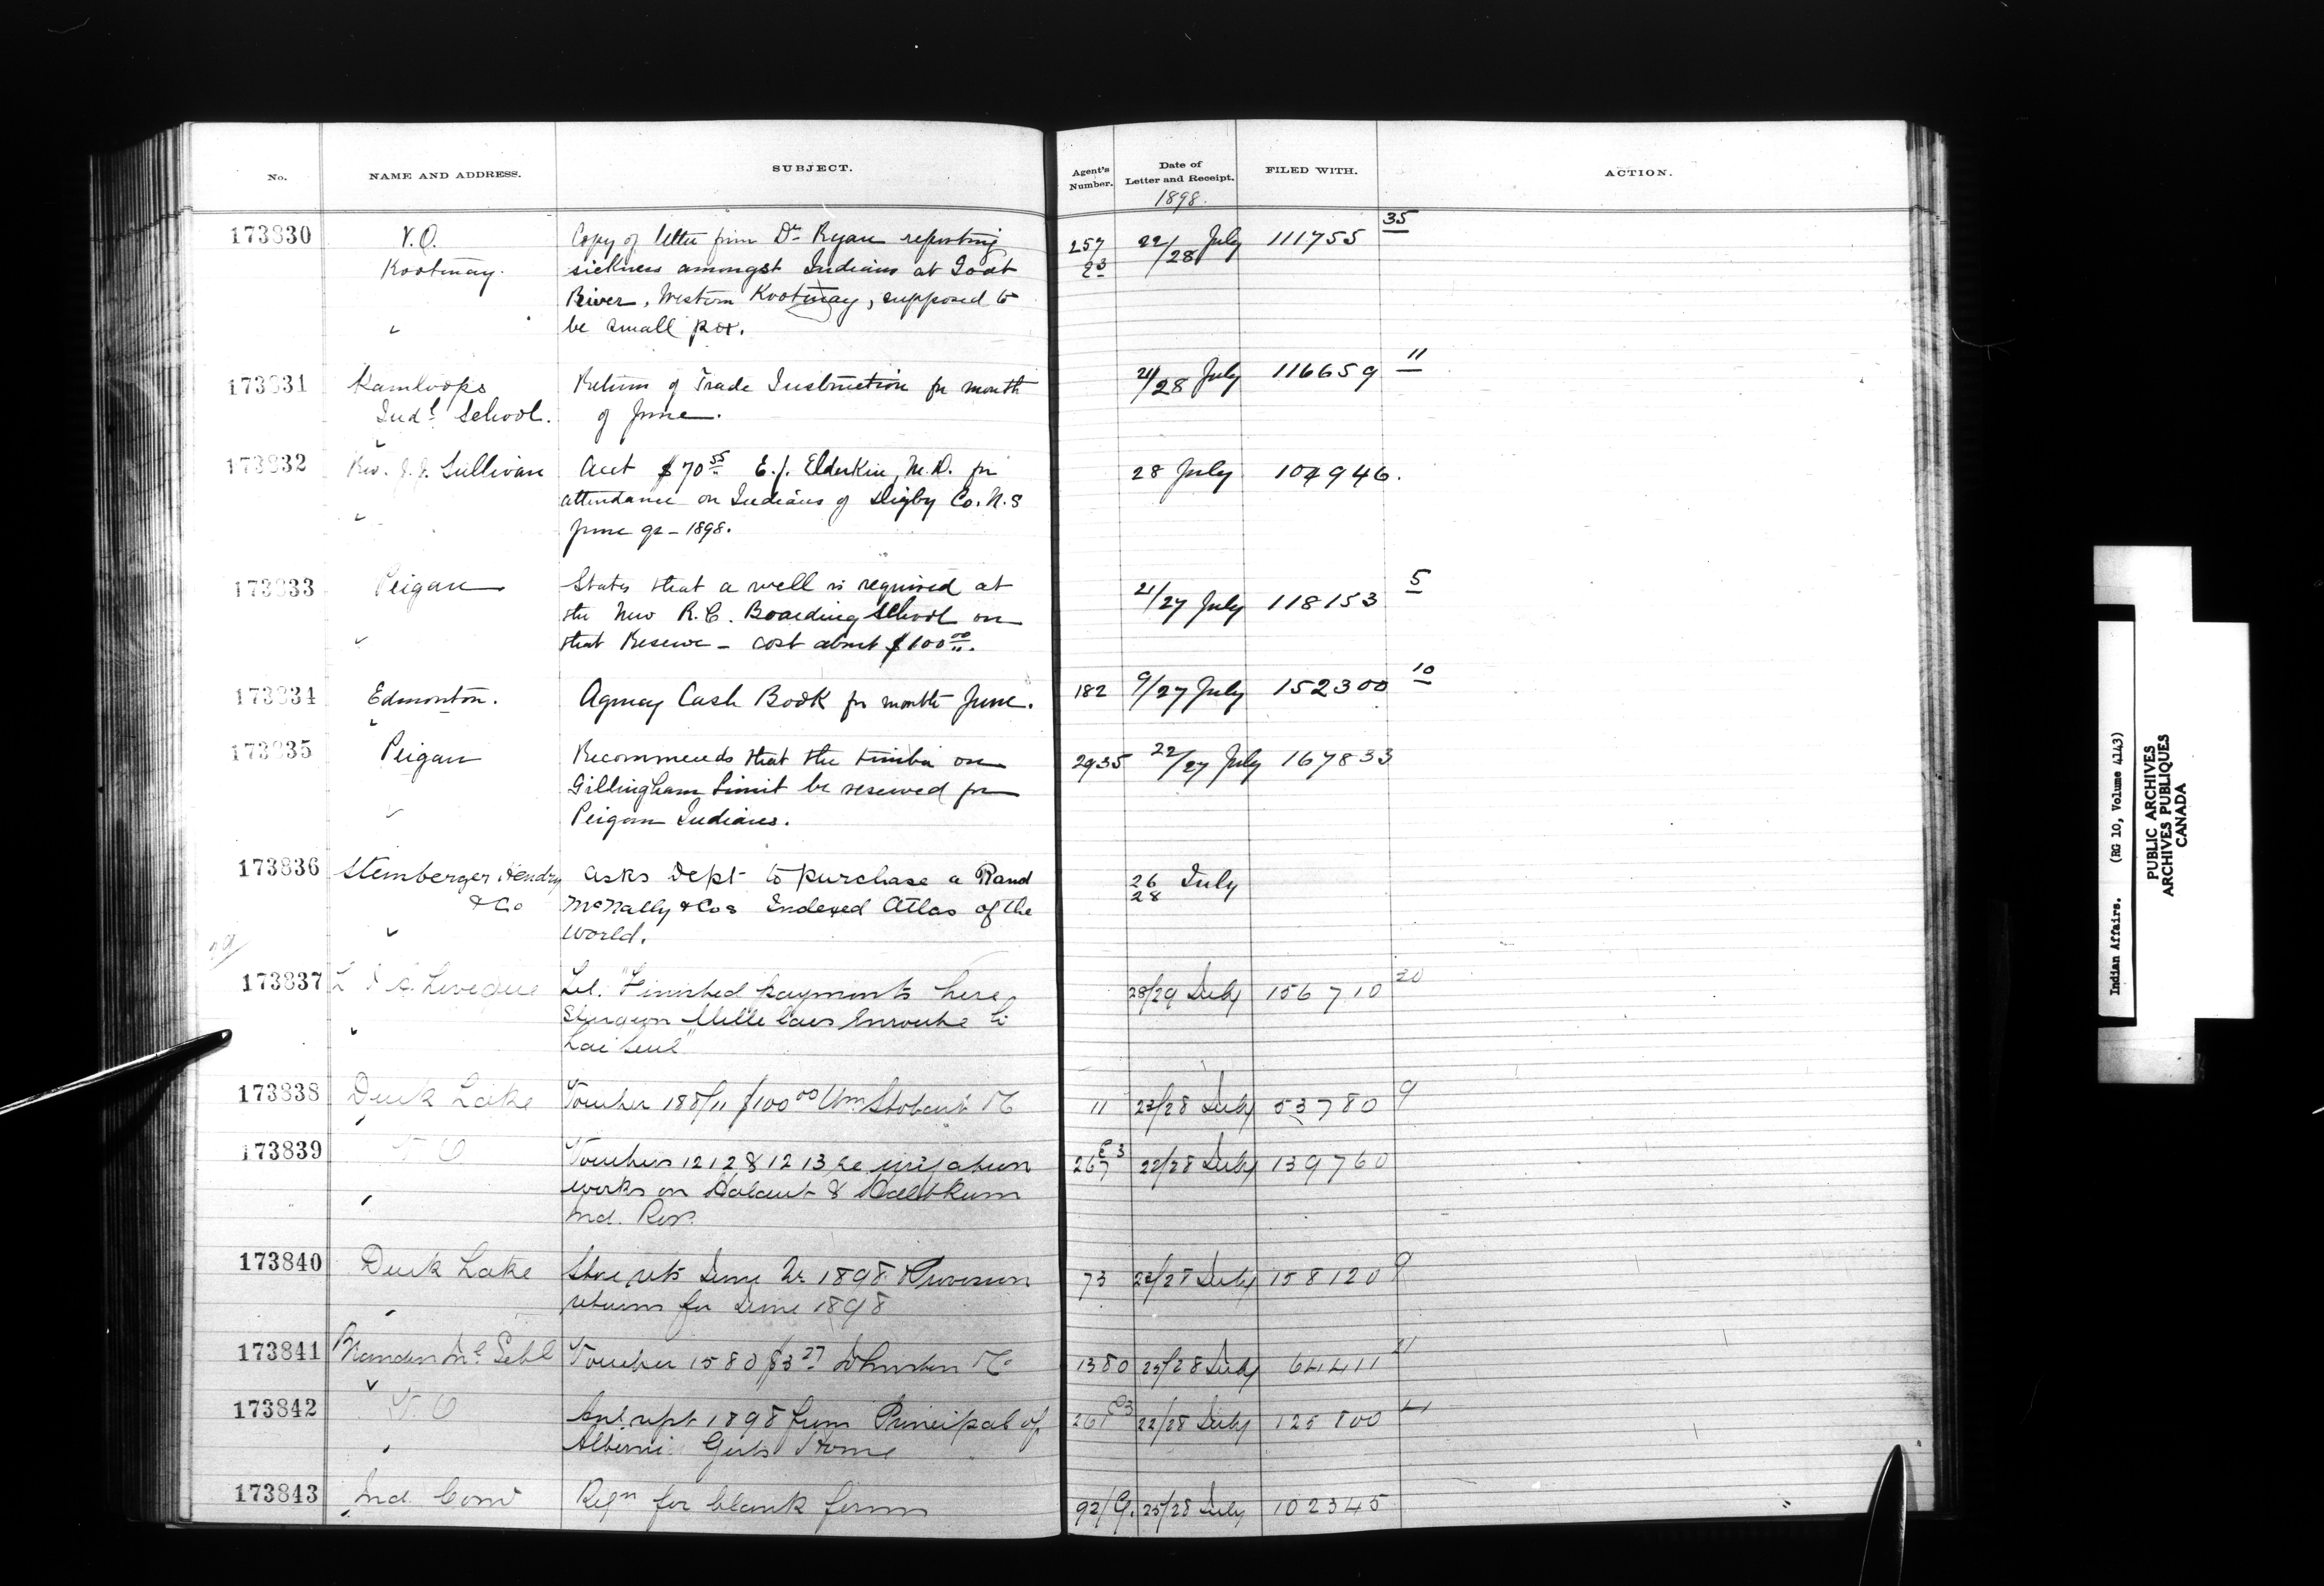 No. NAME AND ADDRESS. SUBJECT. Agent's Number. Date of Letter and Receipt. FILED WITH. ACTION.
1898.
173830 V.O. Copy of letter from Dr Ryan reporting 257 22/28 July 111755 35
Kootenay. sickness amongst Indians at Goat
River, Western Kootenay, supposed to
be small pox.
173831 Kamloops Return of Trade Instruction for month 21/28 July 116659 11
Indl School. of June.
173832 Rev. J.J. Sullivan Acct $70 55 E.J. Elderkin, M.D. for 28 July 104946.
attendance on Indians of Digby Co. N.S
June qr - 1898.
173833 Peigan States that a well is required at 21/27 July 118153 5
the New R.C. Boarding School on
that Reserve - cost about $100 00.
173834 Edmonton. Agency Cash Book for month June. 182 9/27 July 152300 10
173835 Peigan Recommends that the timber on 2935 22/27 July 167833
Gillingham Limit be reserved for
Peigan Indians.
173836 Stemberger Hendry Asks Dept to purchase a Rand 26 July
& Co McNally & Cos Indexed Atlas of the 28
World.
173837 Leveque Tel. "Finished payments here, 28/29 July 156710 20
Sturgeon Mille Lacs Enroute to
Lac Seul"
173838 Duck Lake Voucher 188/11 $100 00 Wm Stobart 11 23/28 July 53780 9
173839 V.O Vouchers 1212 & 1213 re irrigation 267 22/28 July 139760
works on &
Ind. Res.
173840 Duck Lake Store rets June Qr 1898 & Provision 73 23/28 July 158120 9
returns for June 1898
173841 Brandon Schl Voucher 1580 $3 27 Johnston 1380 25/28 July 64411 21
173842 V.O Anl rept 1898 from Principal of 261 22/28 July 125800
Alberni Girls Home
173843 Ind. Comr Reqn for blank forms 92/G. 25/28 July 102345
Indian Affairs. (RG 10, Volume 4143)
PUBLIC ARCHIVES
ARCHIVES PUBLIQUES
CANADA